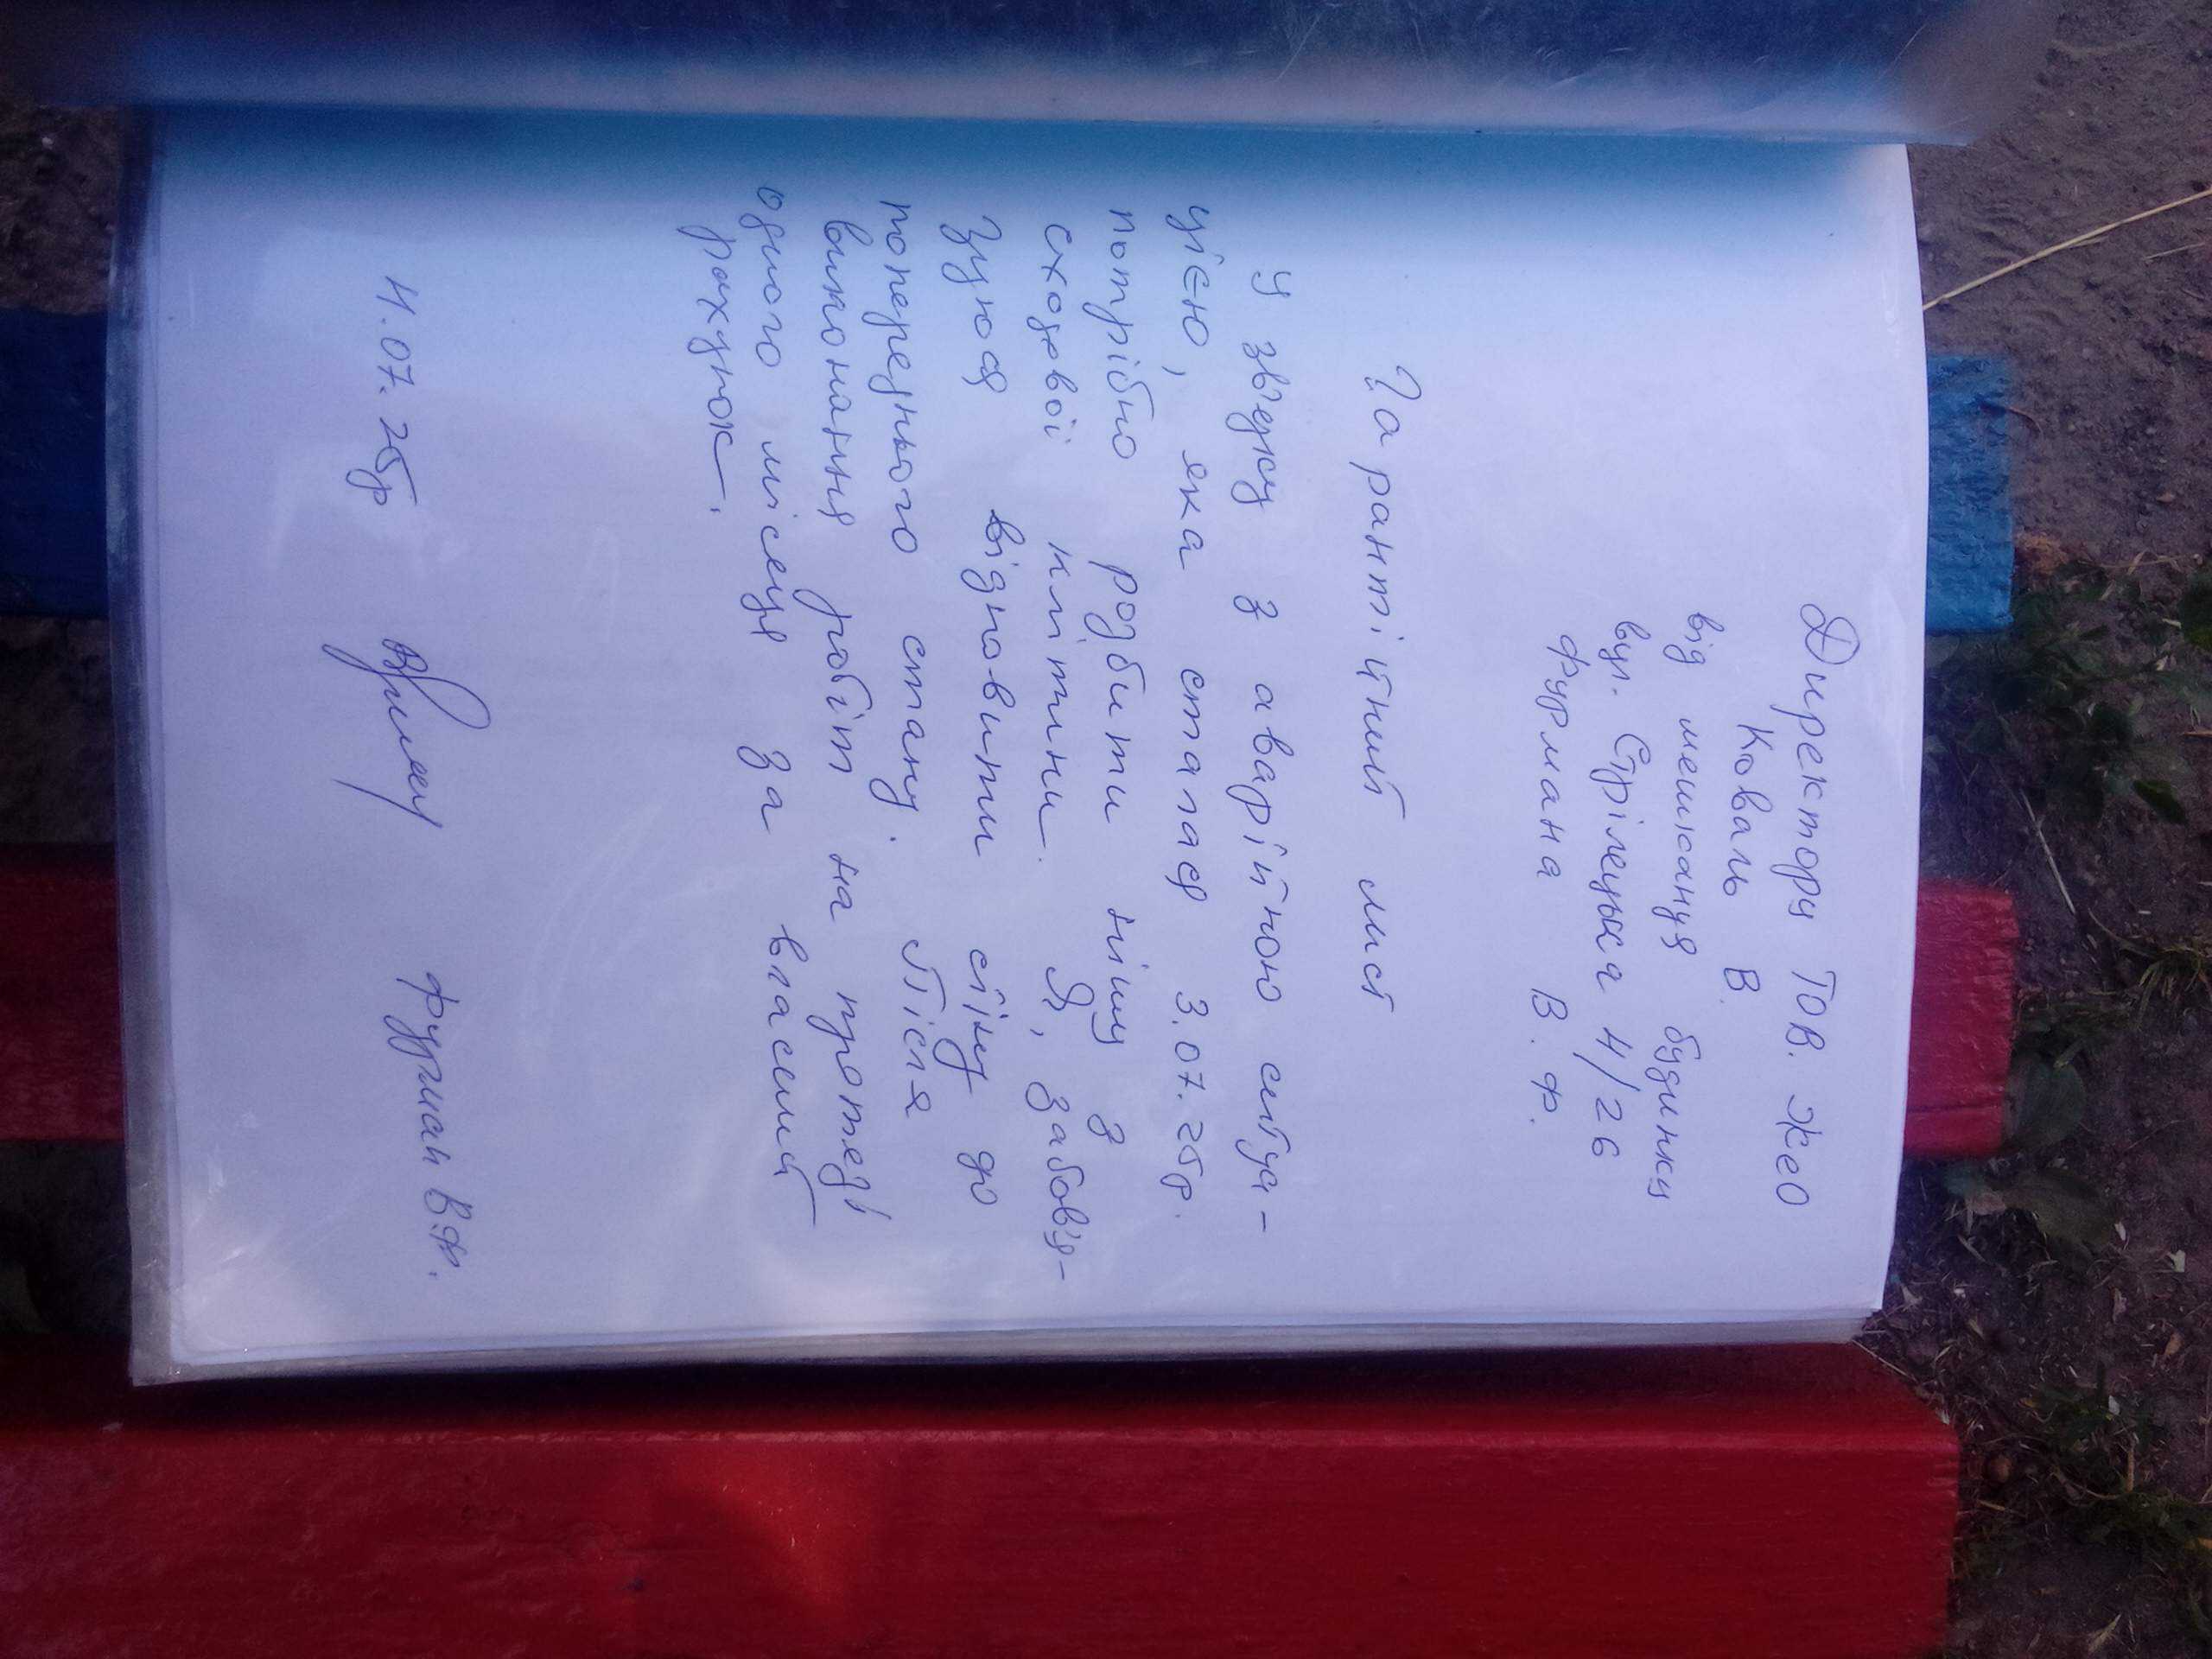 Директору ТОВ. ЖЕО
Коваль В.
від мешканця будинку
вул. Стрілецька 4/26
Фурмана В. Ф.
Гарантійний лист
У звєзку з аварійною ситуа-
цією, яка сталася 3.07.25р.
потрібно розбити нішу з
сходової клітини. Я, забовʼя-
зуюся відновити стіну до
попереднього стану. Після
виконання робіт на протеді
одного місяця за власний
рахунок.
11.07.25р Фурман В.Ф.